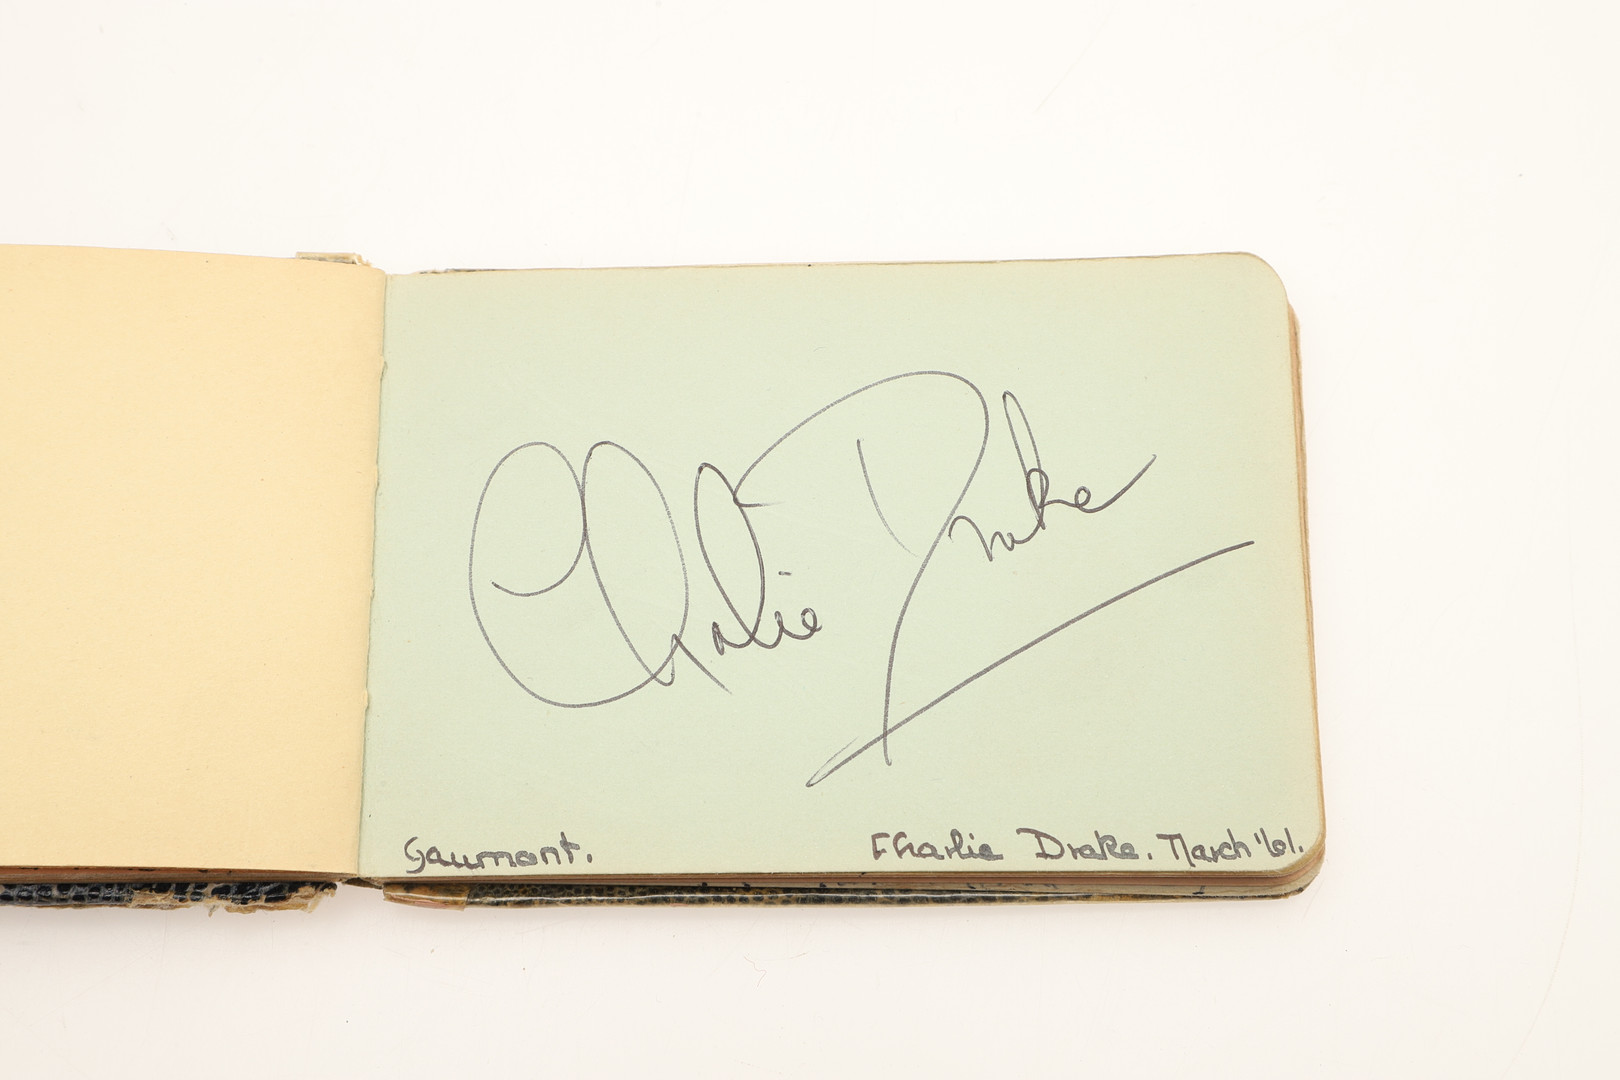 Charlie Drake
Gaumont. Charlie Drake. March '61.